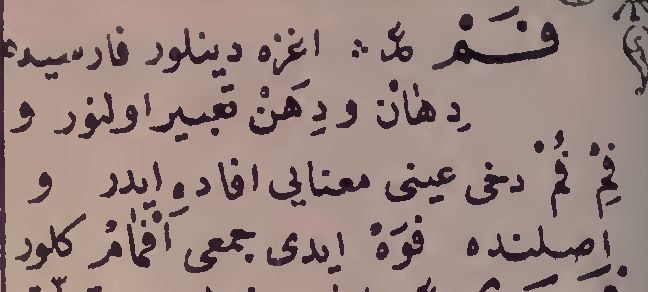 فَمْ اغزه دينلور فارسيده
دِهَانْ و دِهَنْ تعبير اولنور و
فِمْ فُمْ دخى عينى معنايى افاده ايدر و
اصلنده فَوَهْ ايدى جمعى اَفْمَامْ كلور